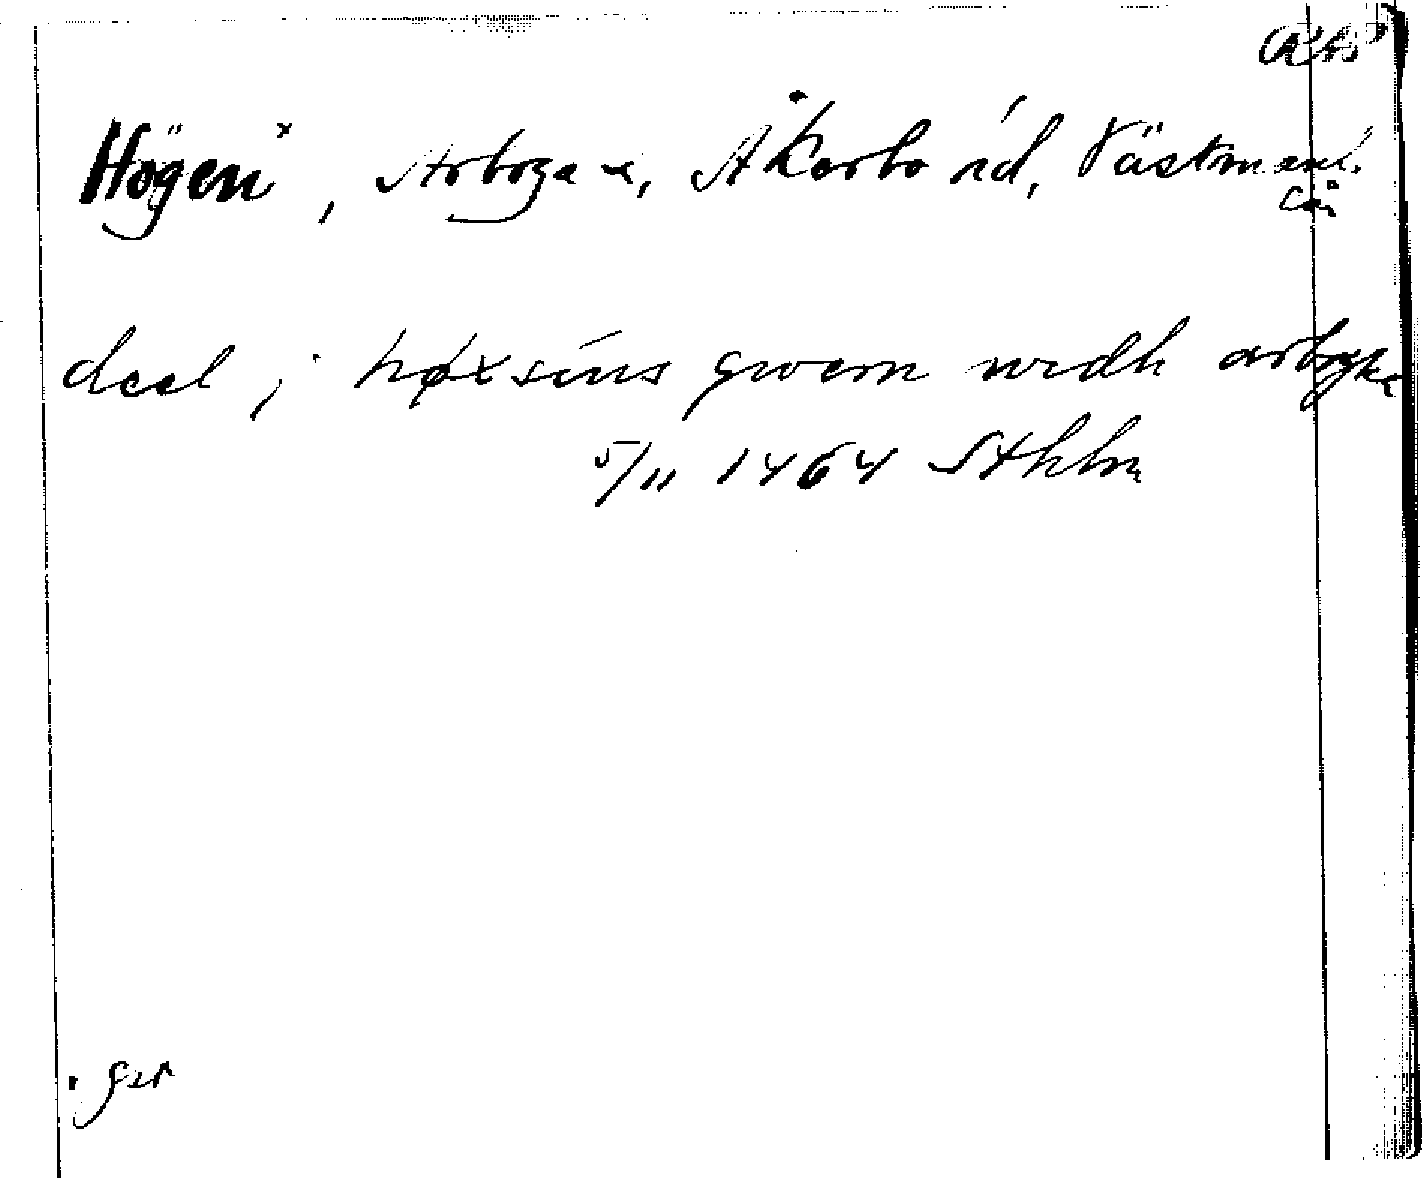 Högen ˣ, Arboga s, Åkerbo hd, Västmanl.
län
deel j høxsins qwern widh arbogha
5/11 1464 Sthlm